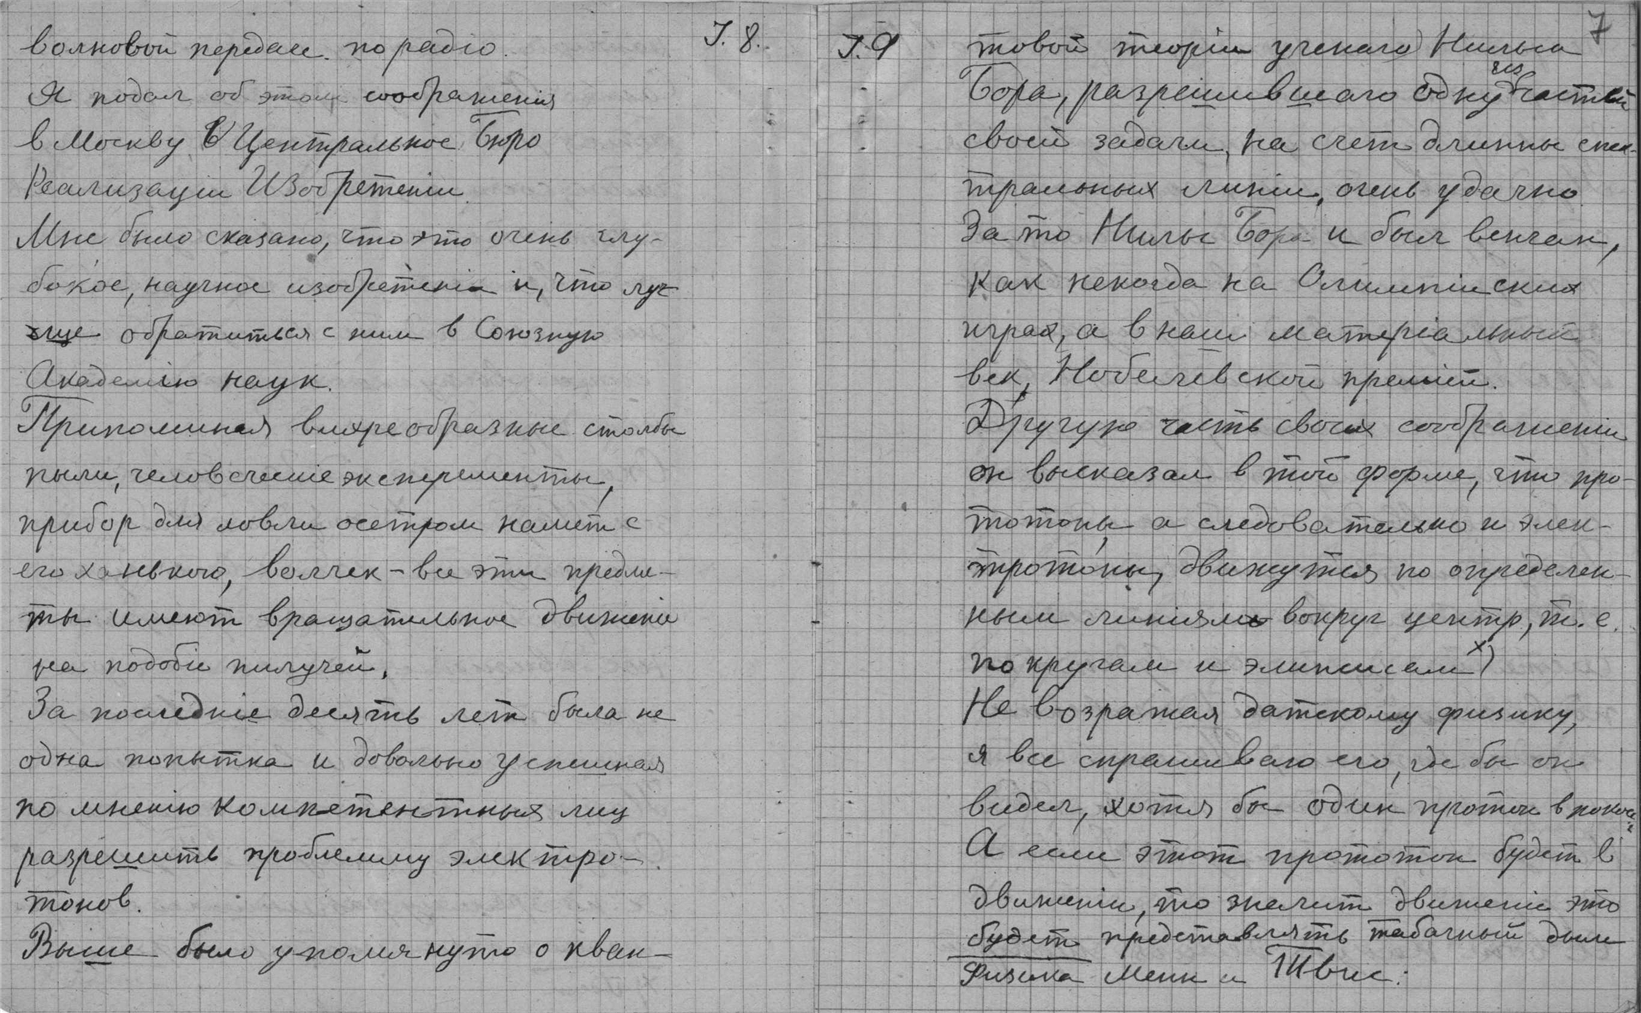 T. 8.
волновой передач. по радіо.
Я подал об этом соображенія
в Москву в Центральное Бюро
Реализаціи Изобретеніи.
Мне было сказано, что это очень глу-
бокое, научное изобретеніе и, что луч
ше обратиться с ним в Союзную
Академію наук.
Припоминая вихреобразные столбы
пыли, человеческіе эксперименты,
прибор для ловли осетром намет с
его ханького, волчек - все эти предме-
ты имеют вращательное движеніе
на подобіе пилучей.
За последніе десять лет была не
одна попытка и довольно успешная
по мненію компетентных лиц
разрешить проблемму электро-
тонов.
Выше было упомянуто о кван-
T. 9
7
товой теоріи ученаго Нильса
Бора, разрешившаго одну из частей
своей задачи, на счет длинны спек-
тральных линіи, очень удачно
За то Нильс Бора и был венчан,
как некогда на Олимпійских
играх, а в наш матеріальный
век, Нобелевской преміей.
Другую часть своих соображеніи
он высказал в той форме, что про-
тотоны, а следовательно и элек-
тротоны, движутся по определен-
ным линіям вокруг центр, т. е.
по кругам и элипсисам x)
Не возражая датскому физику,
я все спрашиваю его, где бы он
видел, хотя бы один протон в покое
А если этот прототон будет в
движеніи, то значит движеніе это
будет представлять табачный дым
Физика Менн и Твис.